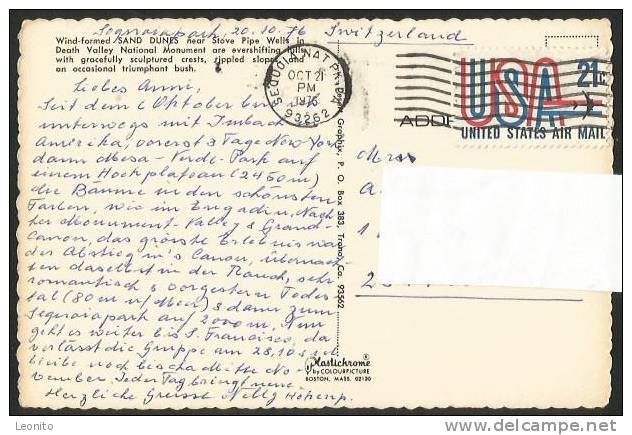 Sequoiapark, 20.10.76 Switzerland
Wind-formed SAND DUNES near Stove Pipe Wells in
Death Valley National Monument are evershifting hills
with gracefully sculptured crests, rippled slopes and
an occasional triumphant bush.
SEQUOIA NAT PK, CA
OCT 21
PM
1976
93262
USA 21c
UNITED STATES AIR MAIL
ADDR
Liebes Anni,
Seit dem 2 Oktober bin ich
unterwegs mit Imbach
Amerika, vorerst 3 Tage New York
dann Mesa-Verde-Park auf
einem Hochplateau (2450m)
die Bäume in den schönsten
Farben, wie im Engadin. Nach
her Monument-Valley & Grand-
Canon, das grösste Erlebnis war
der Abstieg in's Canon, übernach-
ten daselbst in der Ranch, sehr
romantisch & vorgestern Todes-
tal (80m u/Meer) & dann zum
Sequoiapark auf 2000m. Nun
geht es weiter bis S. Francisco, da
verlässt die Gruppe am 28.10 & ich
bleibe noch bis Mitte No-
vember. Jeder Tag bringt neues.
Herzliche Grüsse Nelly
Mrs
Graphix, P. O. Box 383, Trona, Ca. 93562
Plastichrome ®
by COLOURPICTURE
BOSTON, MASS. 02130
Leonito
© delcampe.net